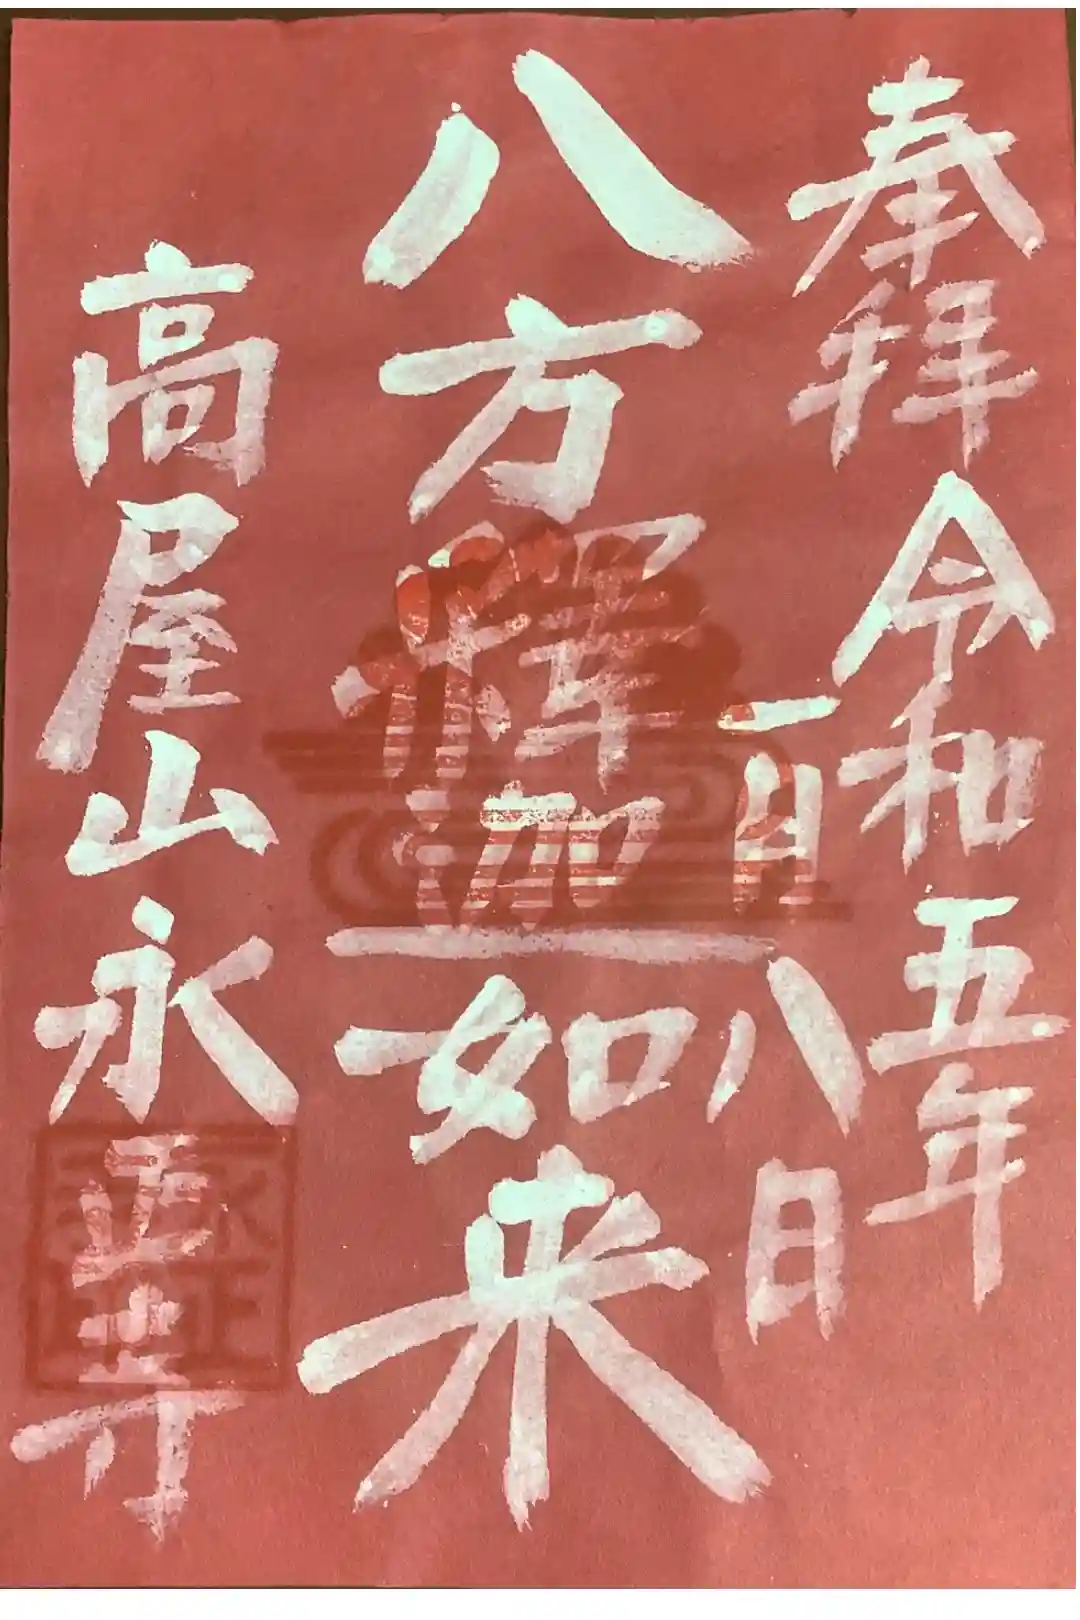 奉拝令和五年
一月八日
八方釋迦如来
高屋山永正寺
永正